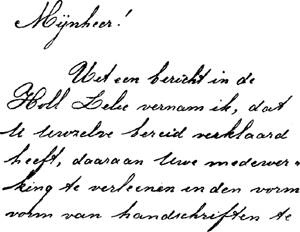 Mijnheer!
Uit een bericht in de
Holl Lelie vernam ik, dat
U Uwzelve bereid verklaard
heeft, daaraan Uwe medewer=
king te verleenen in den vorm
vorm van handschriften te